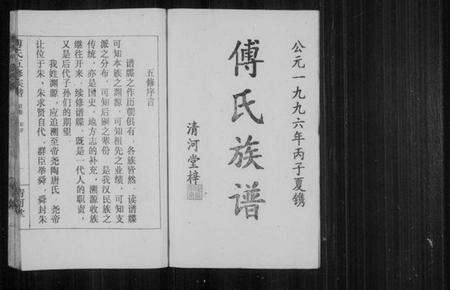 公元一九九六年丙子夏镌
傅氏族谱
清河堂梓
五修序言
谱牒之作历朝俱有，各族皆然，读谱牒
可知本族之渊源，可知祖先之业绩，可知支
派之分布，可知后嗣之辈份，是我汉民族之
传统，亦是国史、地方志的补充，溯源收族
继往开来，续修谱牒，既是一代人的职责，
又是后代子孙们的期望
我姓渊源，应追溯至帝尧陶唐氏，尧帝
让位于朱，朱求贤自代，群臣举舜，舜封朱